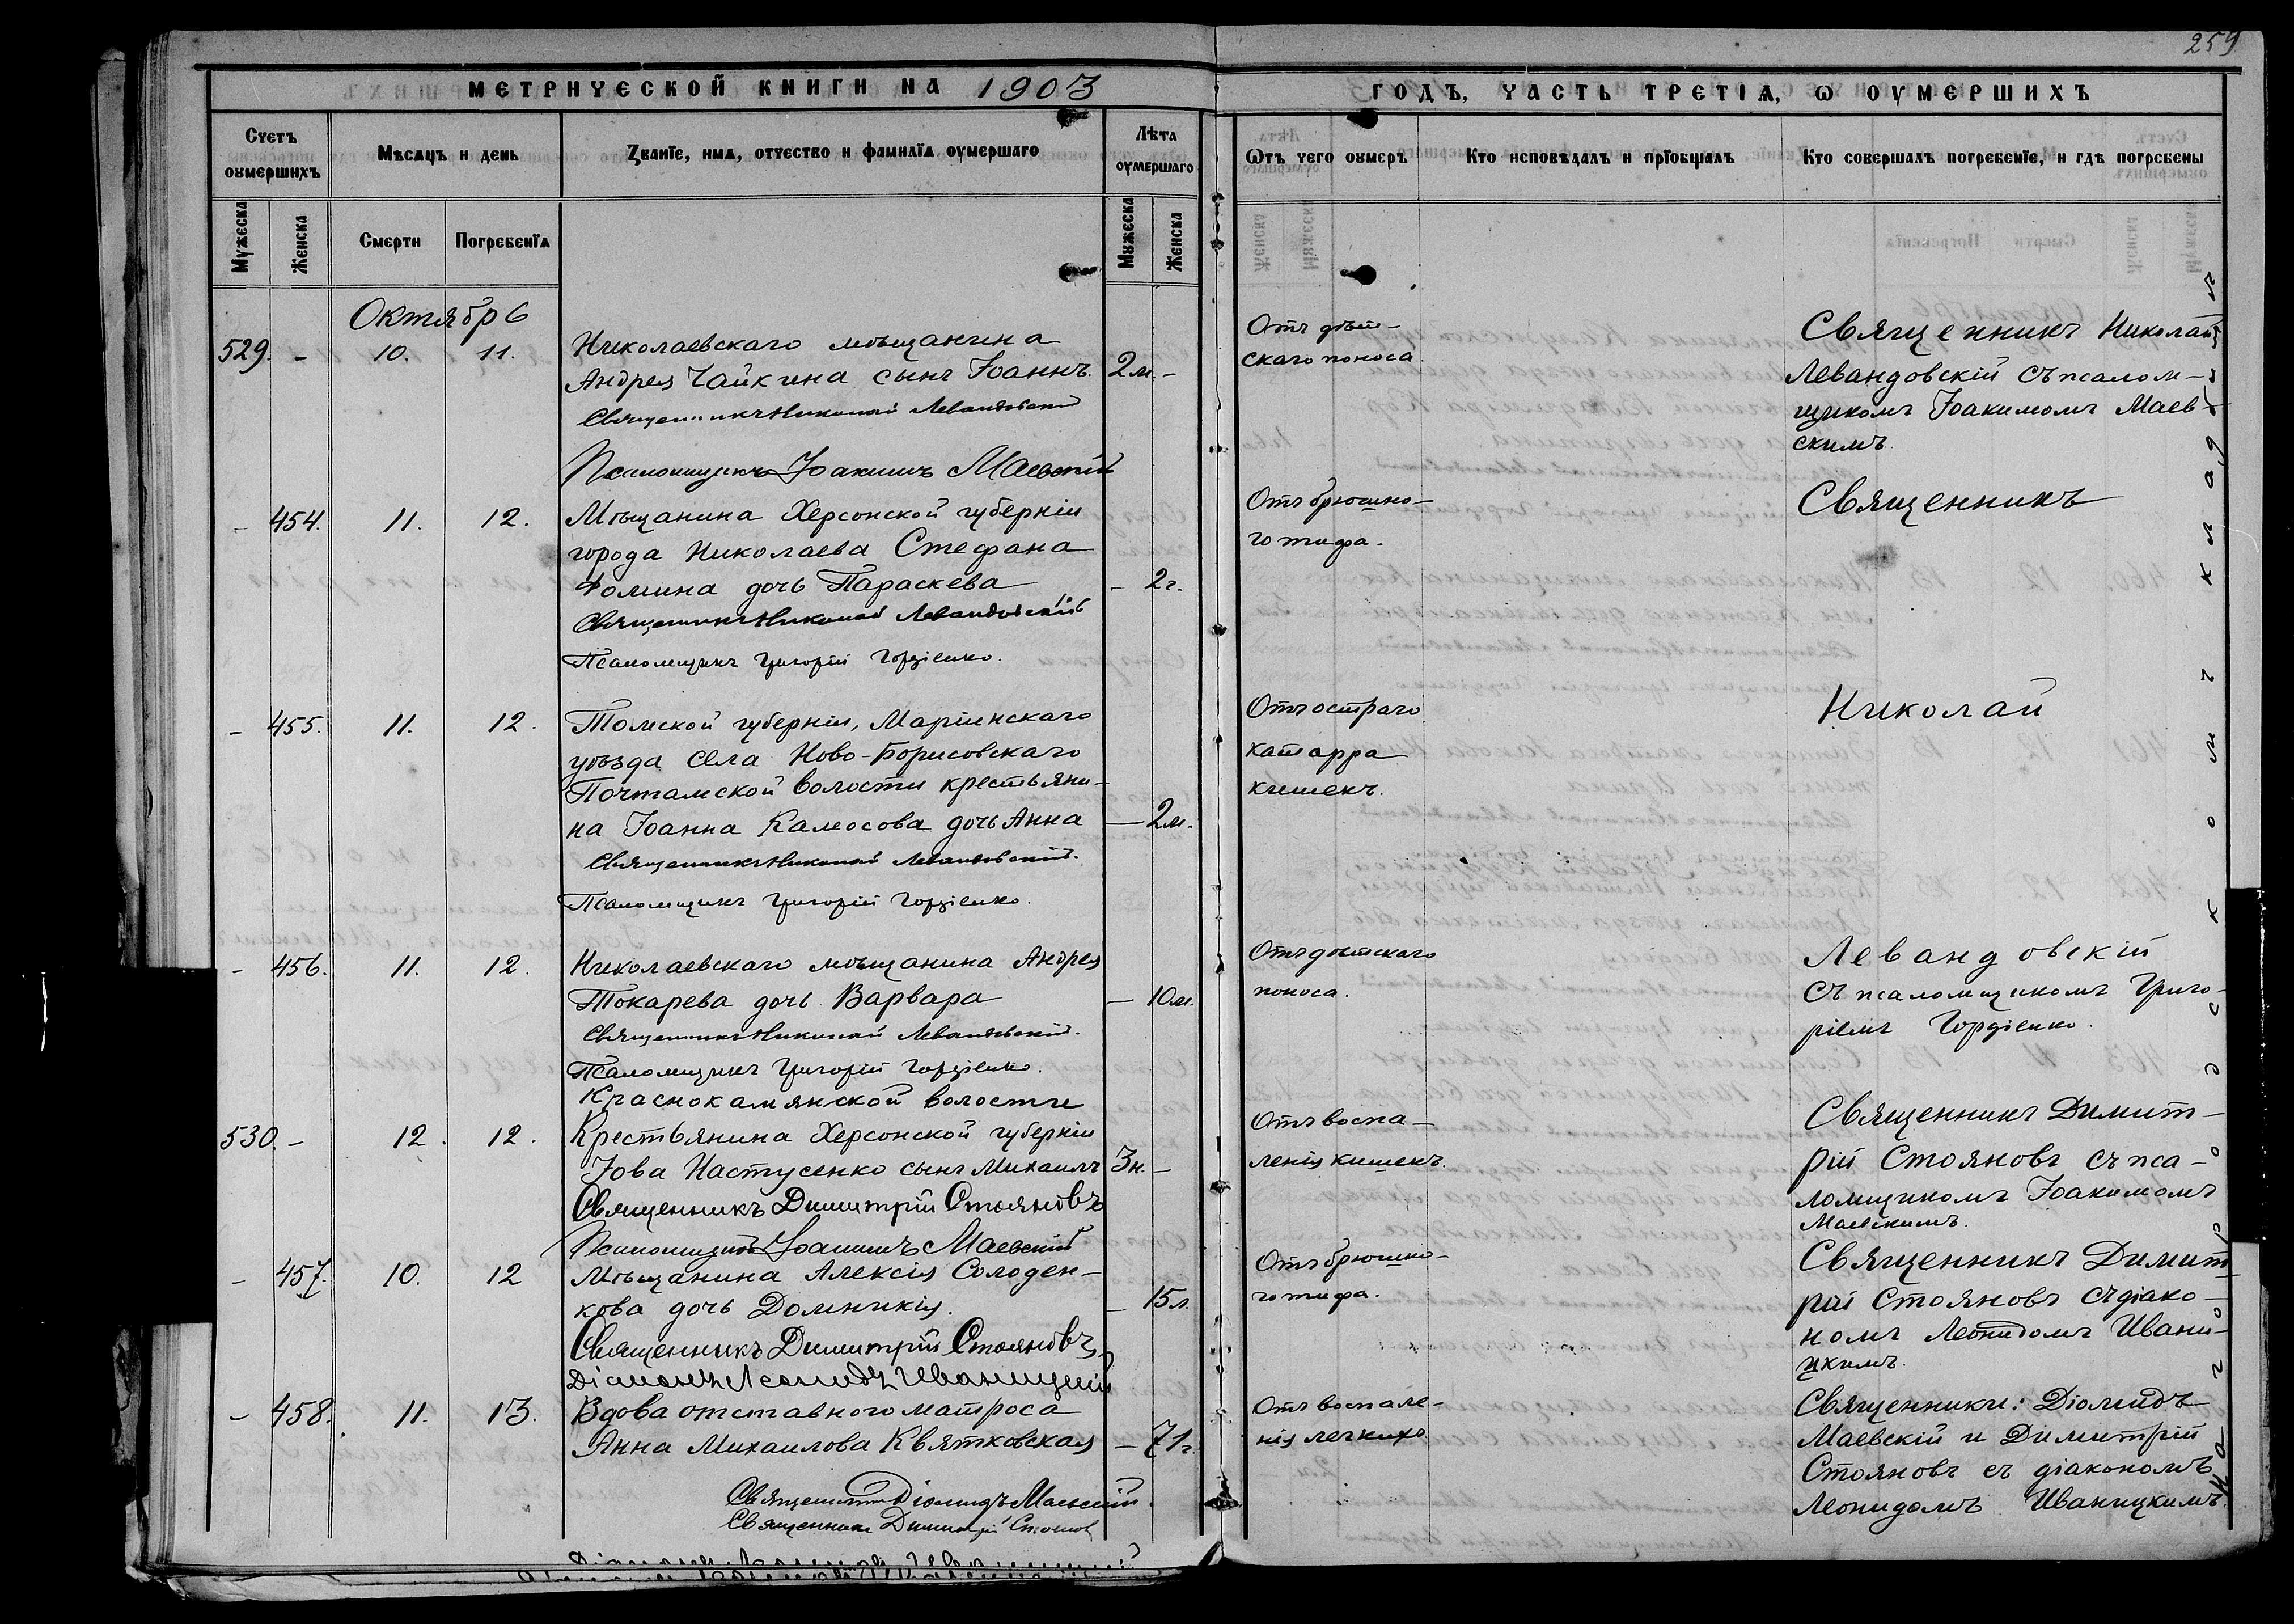 259
МЕТРИЧЕСКОЙ КНИГИ НА 1903
ГОДЪ, ЧАСТЬ ТРЕТІѦ, Ѡ ОУМЕРШИХЪ
Счетъ оумершихъ
Мѣсѧцъ и день
Званїе, имѧ, отчество и фамилїѧ оумершаго
Лѣта оумершаго
Ѿтъ чего оумеръ
Кто исповѣдалъ и прїобщалъ
Кто совершалъ погребенїе, и гдѣ погребены
Мужеска
Женска
Смерти
Погребенїѧ
Мужеска
Женска
Октябрь
529. - 10. 11.
Николаевскаго мѣщанина
Андрея Чайкина сынъ Іоаннъ. 2 м. -
Священникъ Николай Левандовскій
Псаломщикъ Іоакимъ Маевскій
Отъ дѣт-
скаго поноса.
Священникъ Николай
Левандовскій съ псалом-
щикомъ Іоакимомъ Маев-
скимъ.
- 454. 11. 12.
Мѣщанина Херсонской губерніи
города Николаева Стефана
Фомина дочь Параскева - 2 г.
Священникъ Николай Левандовскій
Псаломщикъ Григорій Гордіенко.
Отъ брюшно-
го тифа.
Священникъ
- 455. 11. 12.
Томской губерніи, Маріинскаго
уѣзда села Ново-Борисовскаго
Почтамской волости крестьяни-
на Іоанна Камосова дочь Анна - 2 м.
Священникъ Николай Левандовскій.
Псаломщикъ Григорій Гордіенко.
Отъ остраго
катарра
кишекъ.
Николай
- 456. 11. 12.
Николаевскаго мѣщанина Андрея
Токарева дочь Варвара - 10 м.
Священникъ Николай Левандовскій.
Псаломщикъ Григорій Гордіенко.
Отъ дѣтскаго
поноса.
Левандовскій
съ псаломщикомъ Григо-
ріемъ Гордіенко.
530. - 12. 12.
Краснокамянской волости
Крестьянина Херсонской губерніи
Іова Настусенко сынъ Михаилъ 3 н. -
Священникъ Димитрій Стояновъ
Псаломщикъ Іоакимъ Маевскій
Отъ воспа-
ленія кишекъ.
Священникъ Димит-
рій Стояновъ съ пса-
ломщикомъ Іоакимомъ
Маевскимъ.
- 457. 10. 12
Мѣщанина Алексія Солоден-
кова дочь Домникія. - 15 л.
Священникъ Димитрій Стояновъ
Діаконъ Леонидъ Иваницкій
Отъ брюшно-
го тифа.
Священникъ Димит-
рій Стояновъ съ діако-
номъ Леонидомъ Ивани-
цкимъ.
- 458. 11. 13.
Вдова отставного матроса
Анна Михаилова Квятковская - 71 г.
Священникъ Діомидъ Маевскій.
Священникъ Димитрій Стояновъ
Діаконъ Леонидъ Иваницкій
Отъ воспале-
нія легкихъ.
Священники: Діомидъ
Маевскій и Димитрій
Стояновъ съ діакономъ
Леонидомъ Иваницкимъ.
На городскомъ кладбищѣ